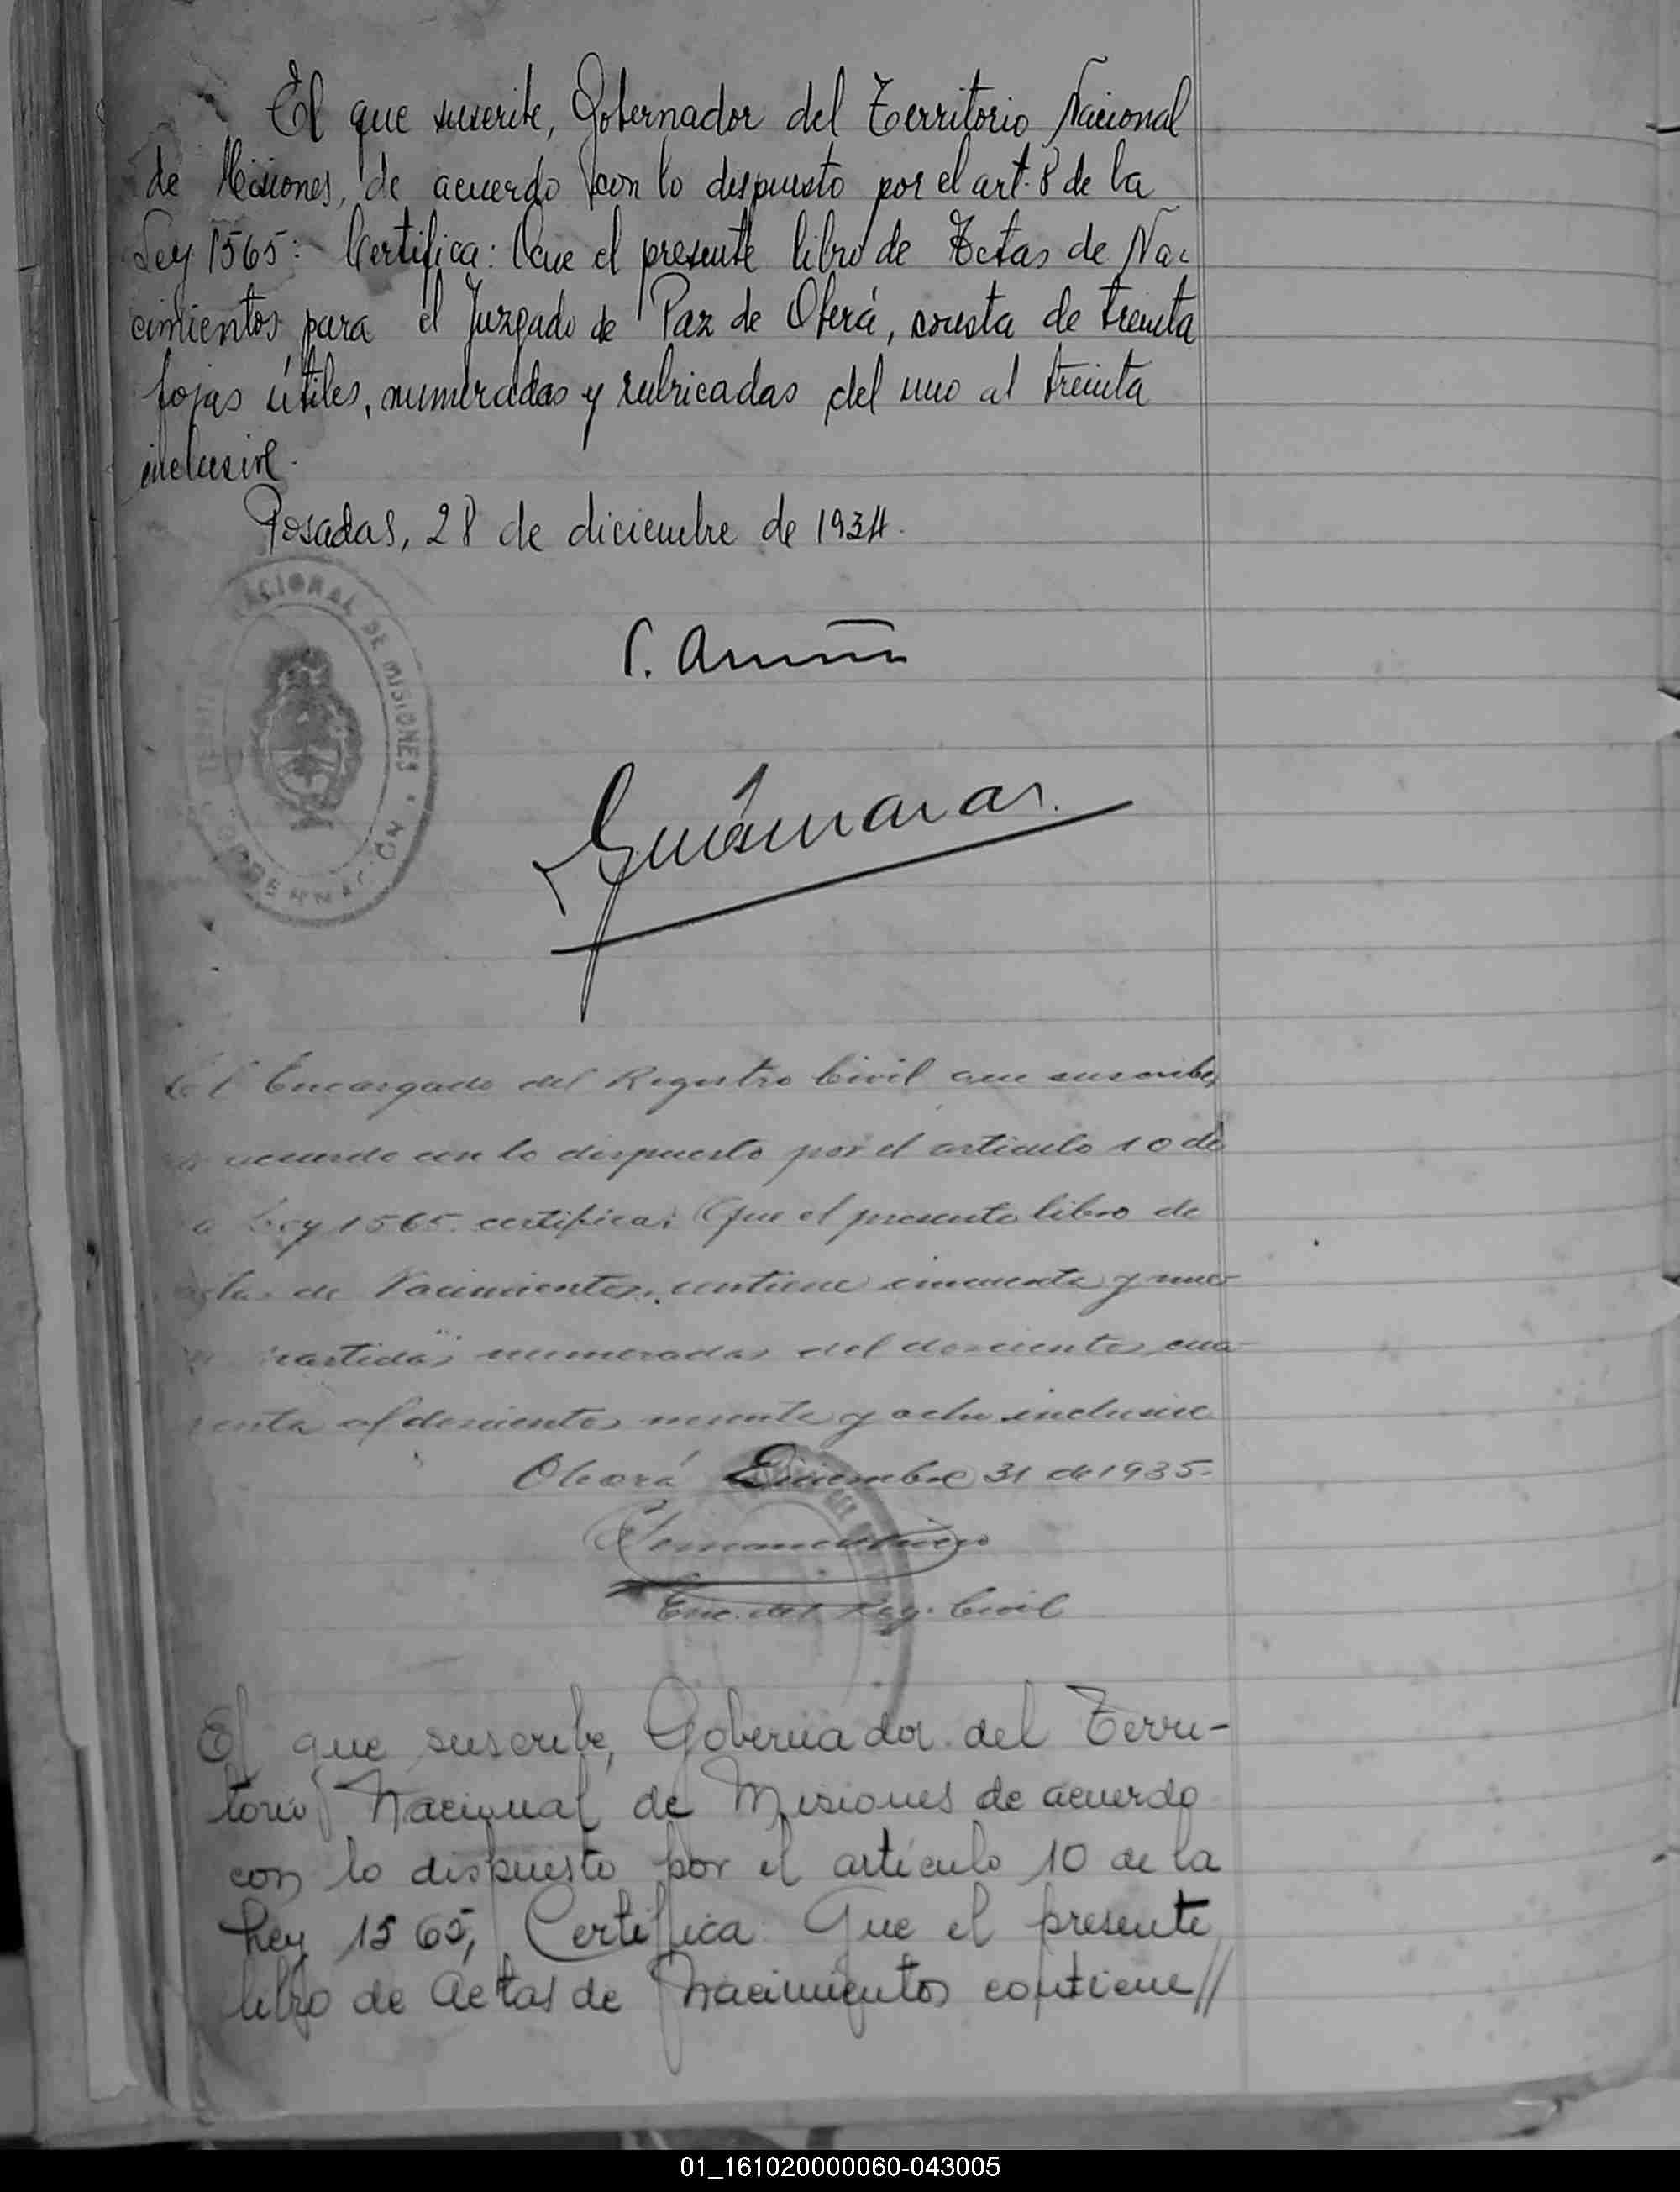 El que suscribe, Gobernador del Territorio Nacional
de Misiones, de acuerdo con lo dispuesto por el art. 8 de la
Ley 1565: Certifica: Que el presente libro de Actas de Na-
cimientos para el Juzgado de Paz de Oberá, consta de treinta
fojas útiles, numeradas y rubricadas del uno al treinta
inclusive.
Posadas, 28 de diciembre de 1934.
NACIONAL DE MISIONES
GOBERNACIÓN
Guiámaras.
El Encargado del Registro Civil que suscribe,
acuerdo con lo dispuesto por el articulo 10 de
Ley 1565. certifica: Que el presente libro de
de Nacimientos, contiene cincuenta y nue-
partidas numeradas del doscientos cua-
renta al doscientos noventa y ocho inclusive
Oberá Diciembre 31 de 1935.
Enc. del Reg. Civil
El que suscribe, Gobernador del Terri-
torio Nacional de Misiones de acuerdo
con lo dispuesto por el artículo 10 de la
Ley 1565, Certifica Que el presente
libro de Actas de Nacimientos contiene//
01_161020000060-043005